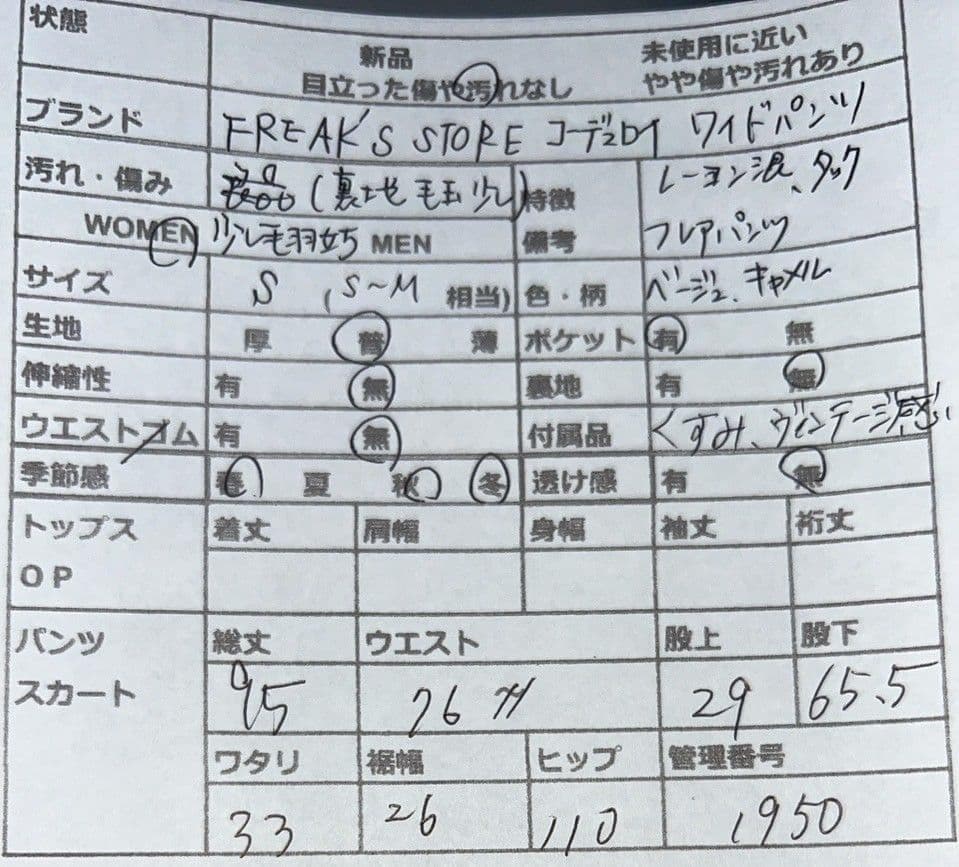 状態 新品 未使用に近い
目立った傷や汚れなし やや傷や汚れあり
ブランド FREAK'S STORE コーデュロイ ワイドパンツ
汚れ・傷み (裏地 毛玉少し) 特徴 レーヨン混、タック
WOMEN 少し毛羽立ち MEN 備考 フレアパンツ
サイズ S (S〜M 相当) 色・柄 ベージュ、キャメル
生地 厚 普 薄 ポケット 有 無
伸縮性 有 無 裏地 有 無
ウエストゴム 有 無 付属品 くすみ、ヴィンテージ感
季節感 春 夏 秋 冬 透け感 有 無
トップス 着丈 肩幅 身幅 袖丈 裄丈
OP
パンツ 総丈 ウエスト 股上 股下
スカート 95 76 29 65.5
ワタリ 裾幅 ヒップ 管理番号
33 26 110 1950